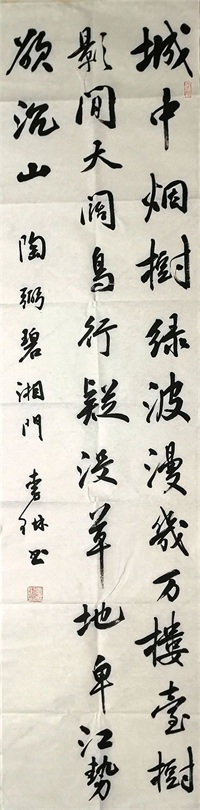 城中烟樹绿波漫幾万樓臺樹
影間天闊鳥行疑没草地卑江勢
欲沉山 陶弼碧湘門 李琳书